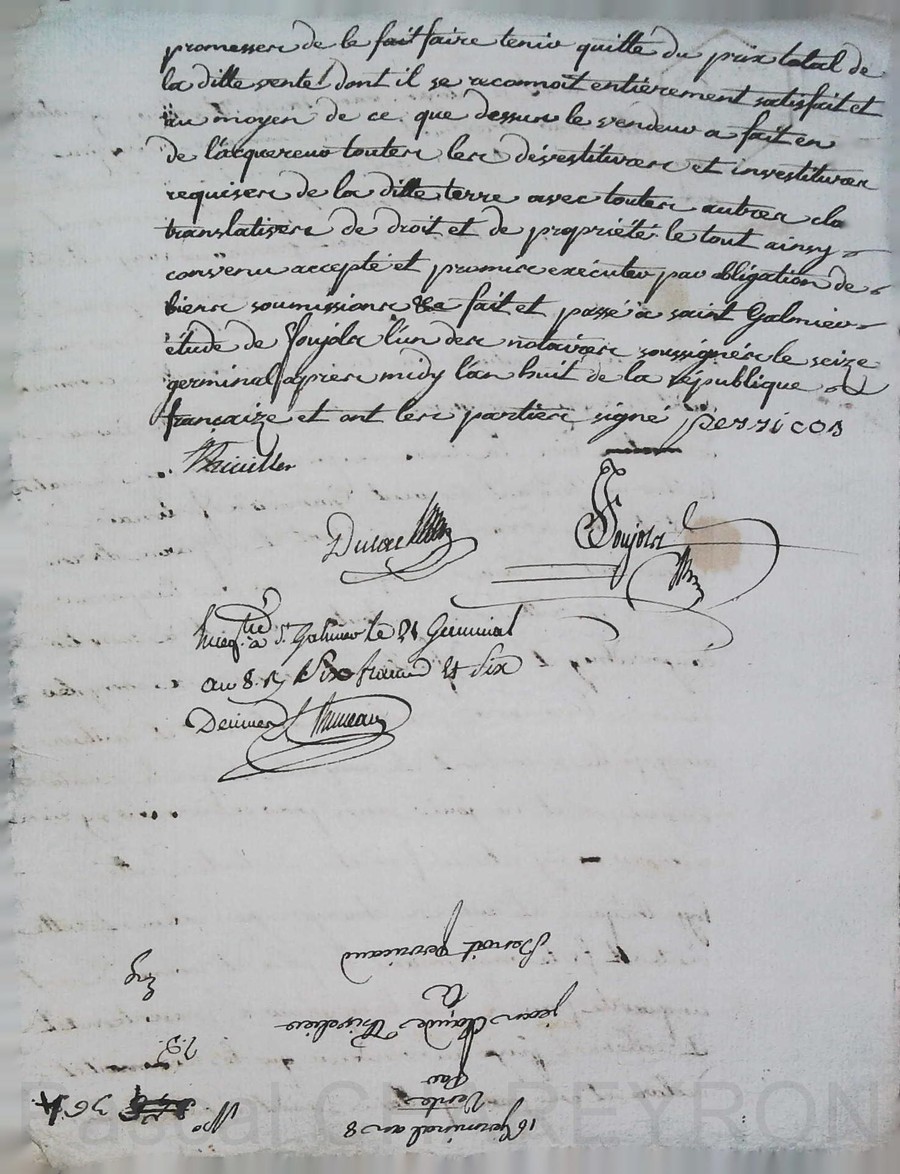 promesses de le fait faire tenir quitte du prix total de
la ditte vente dont il se reconnoit entièrement satisfait et
au moyen de ce que dessus le vendeur a fait en
de l'acquereur toutes les désvestitures et investitures
requises de la ditte terre avec toutes autres cla
translatives de droit et de propriété le tout ainsy
convenu accepté et promis exécuter par obligation de
biens soumissions &a fait et passé à saint Galmier
étude de Soujols l'un des notaires soussignés le seize
germinal apres midy l'an huit de la république
françaize et ont les parties signé perricos
Soujols
à St Galmier le 21 Germinal
an 8. Six francs et Six
Decimes
16 germinal an 8
Vente
Par
jean Claude Thivelier
A
Benoit perricaud
No
36
Pascal CHAREYRON